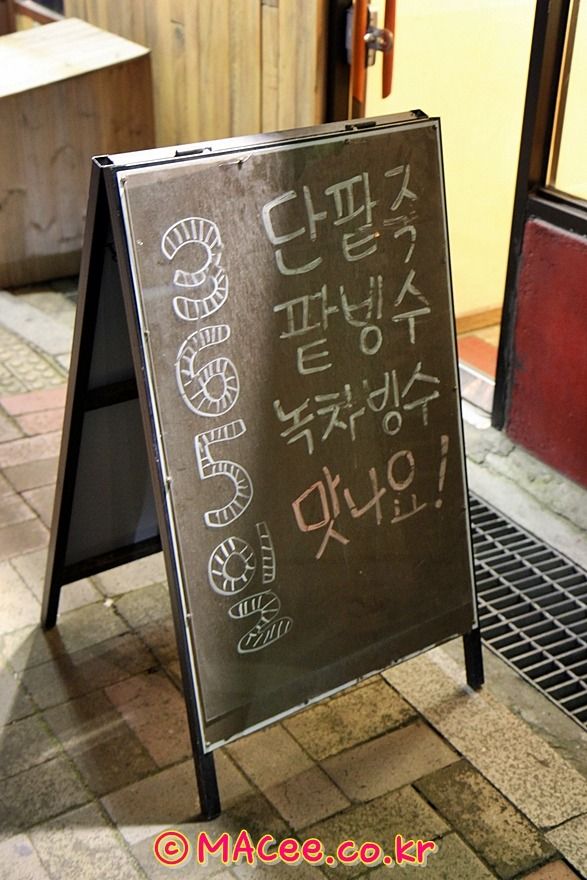 365일
단팥죽
팥빙수
녹차빙수
맛나요!
© MACee.co.kr